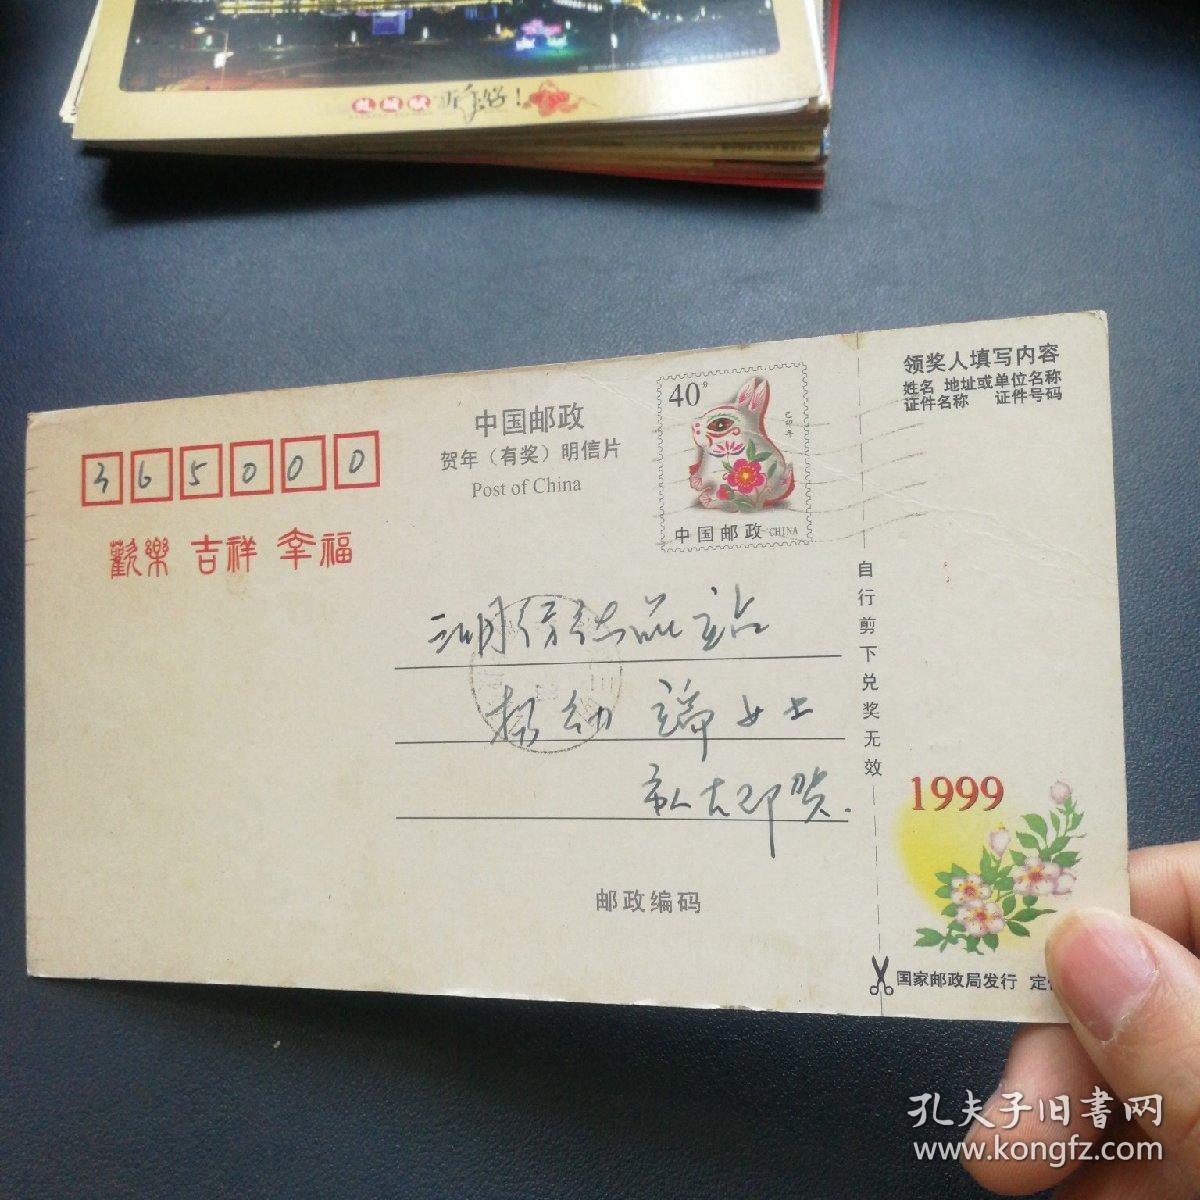 新年好!
365000
歡樂 吉祥 幸福
中国邮政
贺年（有奖）明信片
Post of China
40分
己卯年
中国邮政 CHINA
领奖人填写内容
姓名 地址或单位名称
证件名称 证件号码
自行剪下兑奖无效
站
杨幼端女士
贺.
邮政编码
1999
国家邮政局发行 定
孔夫子旧書网
www.kongfz.com